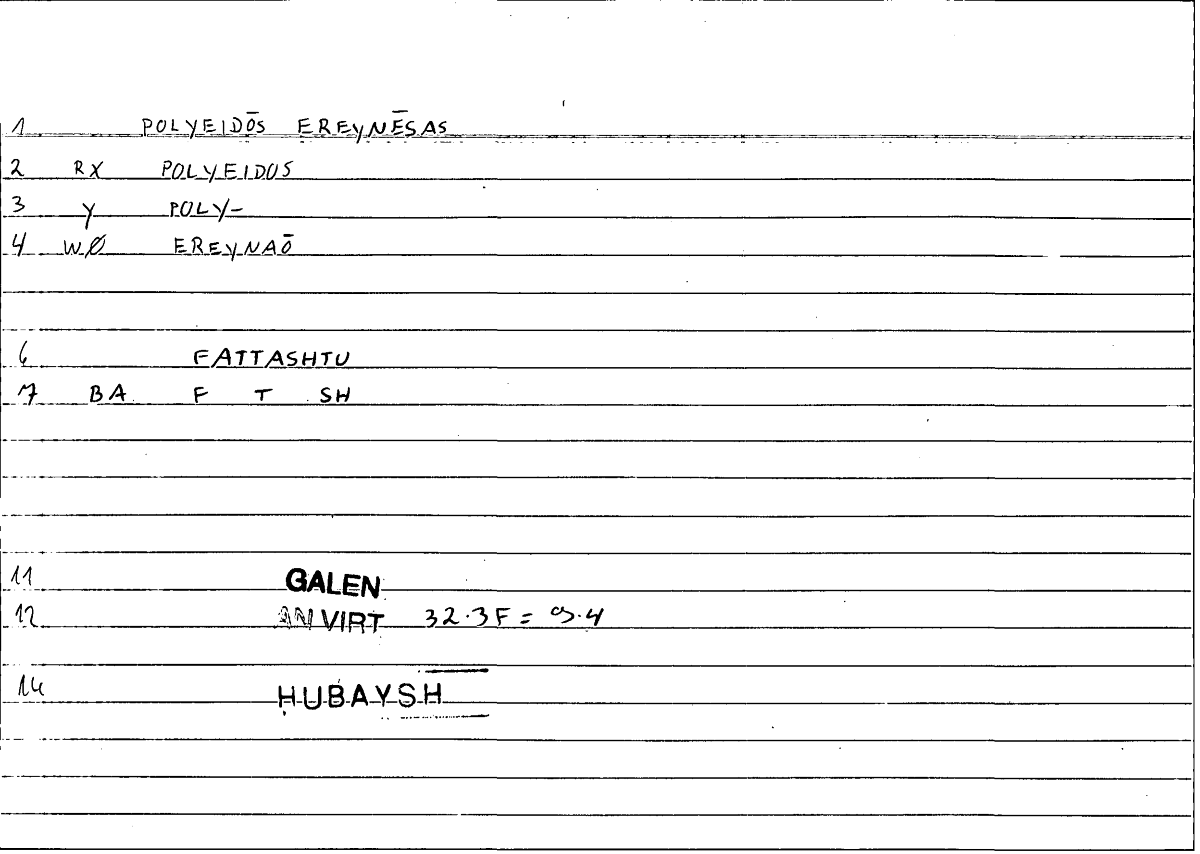 1 POLYEIDŌS EREYNĒSAS
2 RX POLYEIDOS
3 Y POLY-
4 WØ EREYNAŌ
6 FATTASHTU
7 BA F T SH
11 GALEN
12 AN VIRT 32.3F = 9.4
14 HUBAYSH